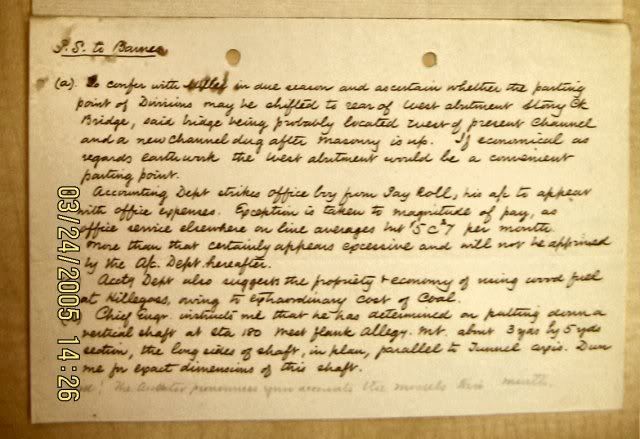 P.S. to Barnes
(a). To confer with Miller in due season and ascertain whether the parting
point of Divisions may be shifted to rear of West abutment Stony Ck
Bridge, said bridge being probably located west of present Channel
and a new channel dug after masonry is up. If economical as
regards earthwork the West abutment would be a convenient
parting point.
Accounting Dept strikes office boy from Pay Roll, his a/c to appear
with office expenses. Exception is taken to magnitude of pay, as
office service elsewhere on line averages but $5 @ 7 per month.
More than that certainly appears excessive and will not be approved
by the A/c. Dept. hereafter.
Acctg Dept also suggests the propriety & economy of using wood fuel
at Hillegoes, owing to extraordinary cost of Coal.
Chief Engr. instructs me that he has determined on putting down a
vertical shaft at Sta 180 West flank Allegy. Mt. about 3 yds by 5 yds
section, the long sides of shaft, in plan, parallel to Tunnel axis. Draw
me for exact dimensions of this shaft.
The Auditor pronounces your accounts the models this month.
03/24/2005 14:26